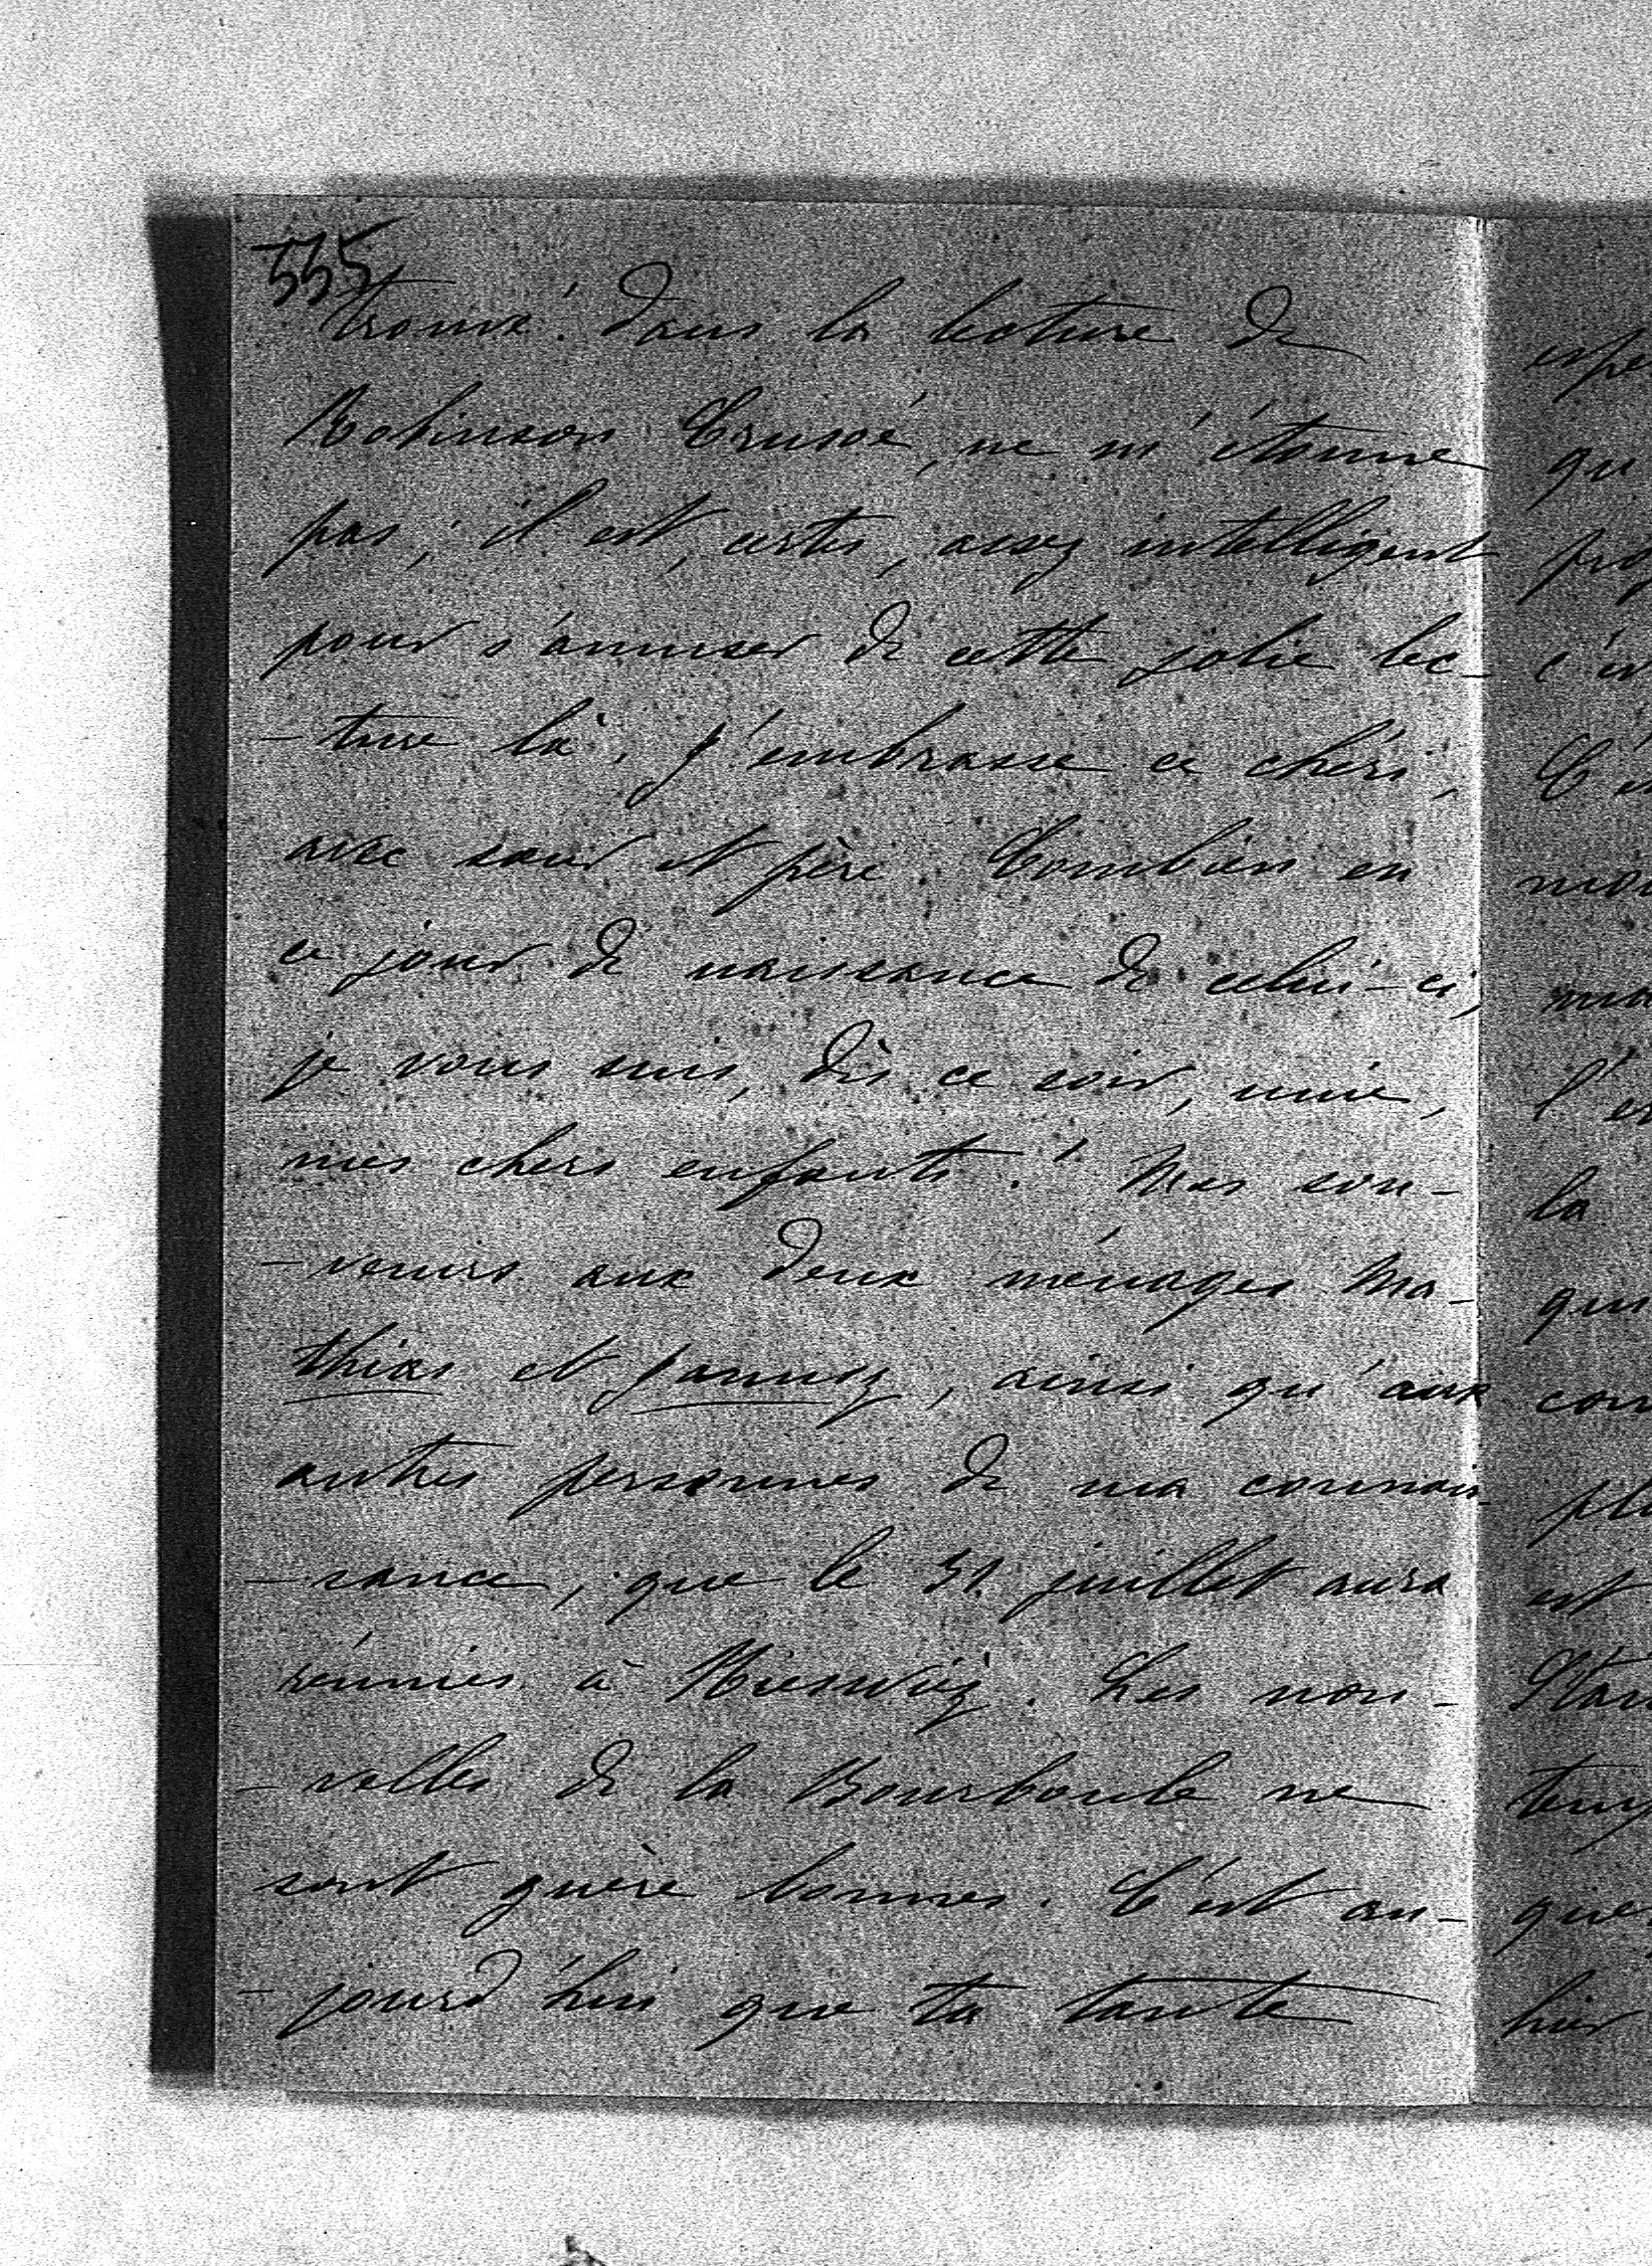 555
trouvé dans la lecture de
Robinson Crusoé, ne m'étonne
pas; il est, certes, assez intelligent
pour s'amuser de cette jolie lec-
-ture là. J'embrasse ce chéri,
avec sœur et père. Combien en
ce jour de naissance de celui-ci,
je vous suis, dès ce soir, unie,
mes chers enfants! Mes sou-
-venirs aux deux ménages Ma-
thias et Janusz, ainsi qu'aux
autres personnes de ma connais-
-sance, que le 31 juillet aura
réunies à Nieswiez. Les nou-
-velles de la Bourboule ne
sont guère bonnes. C'est au-
-jourd'hui que ta tante
qu
c'es
C'es
l'es
la
est
hier